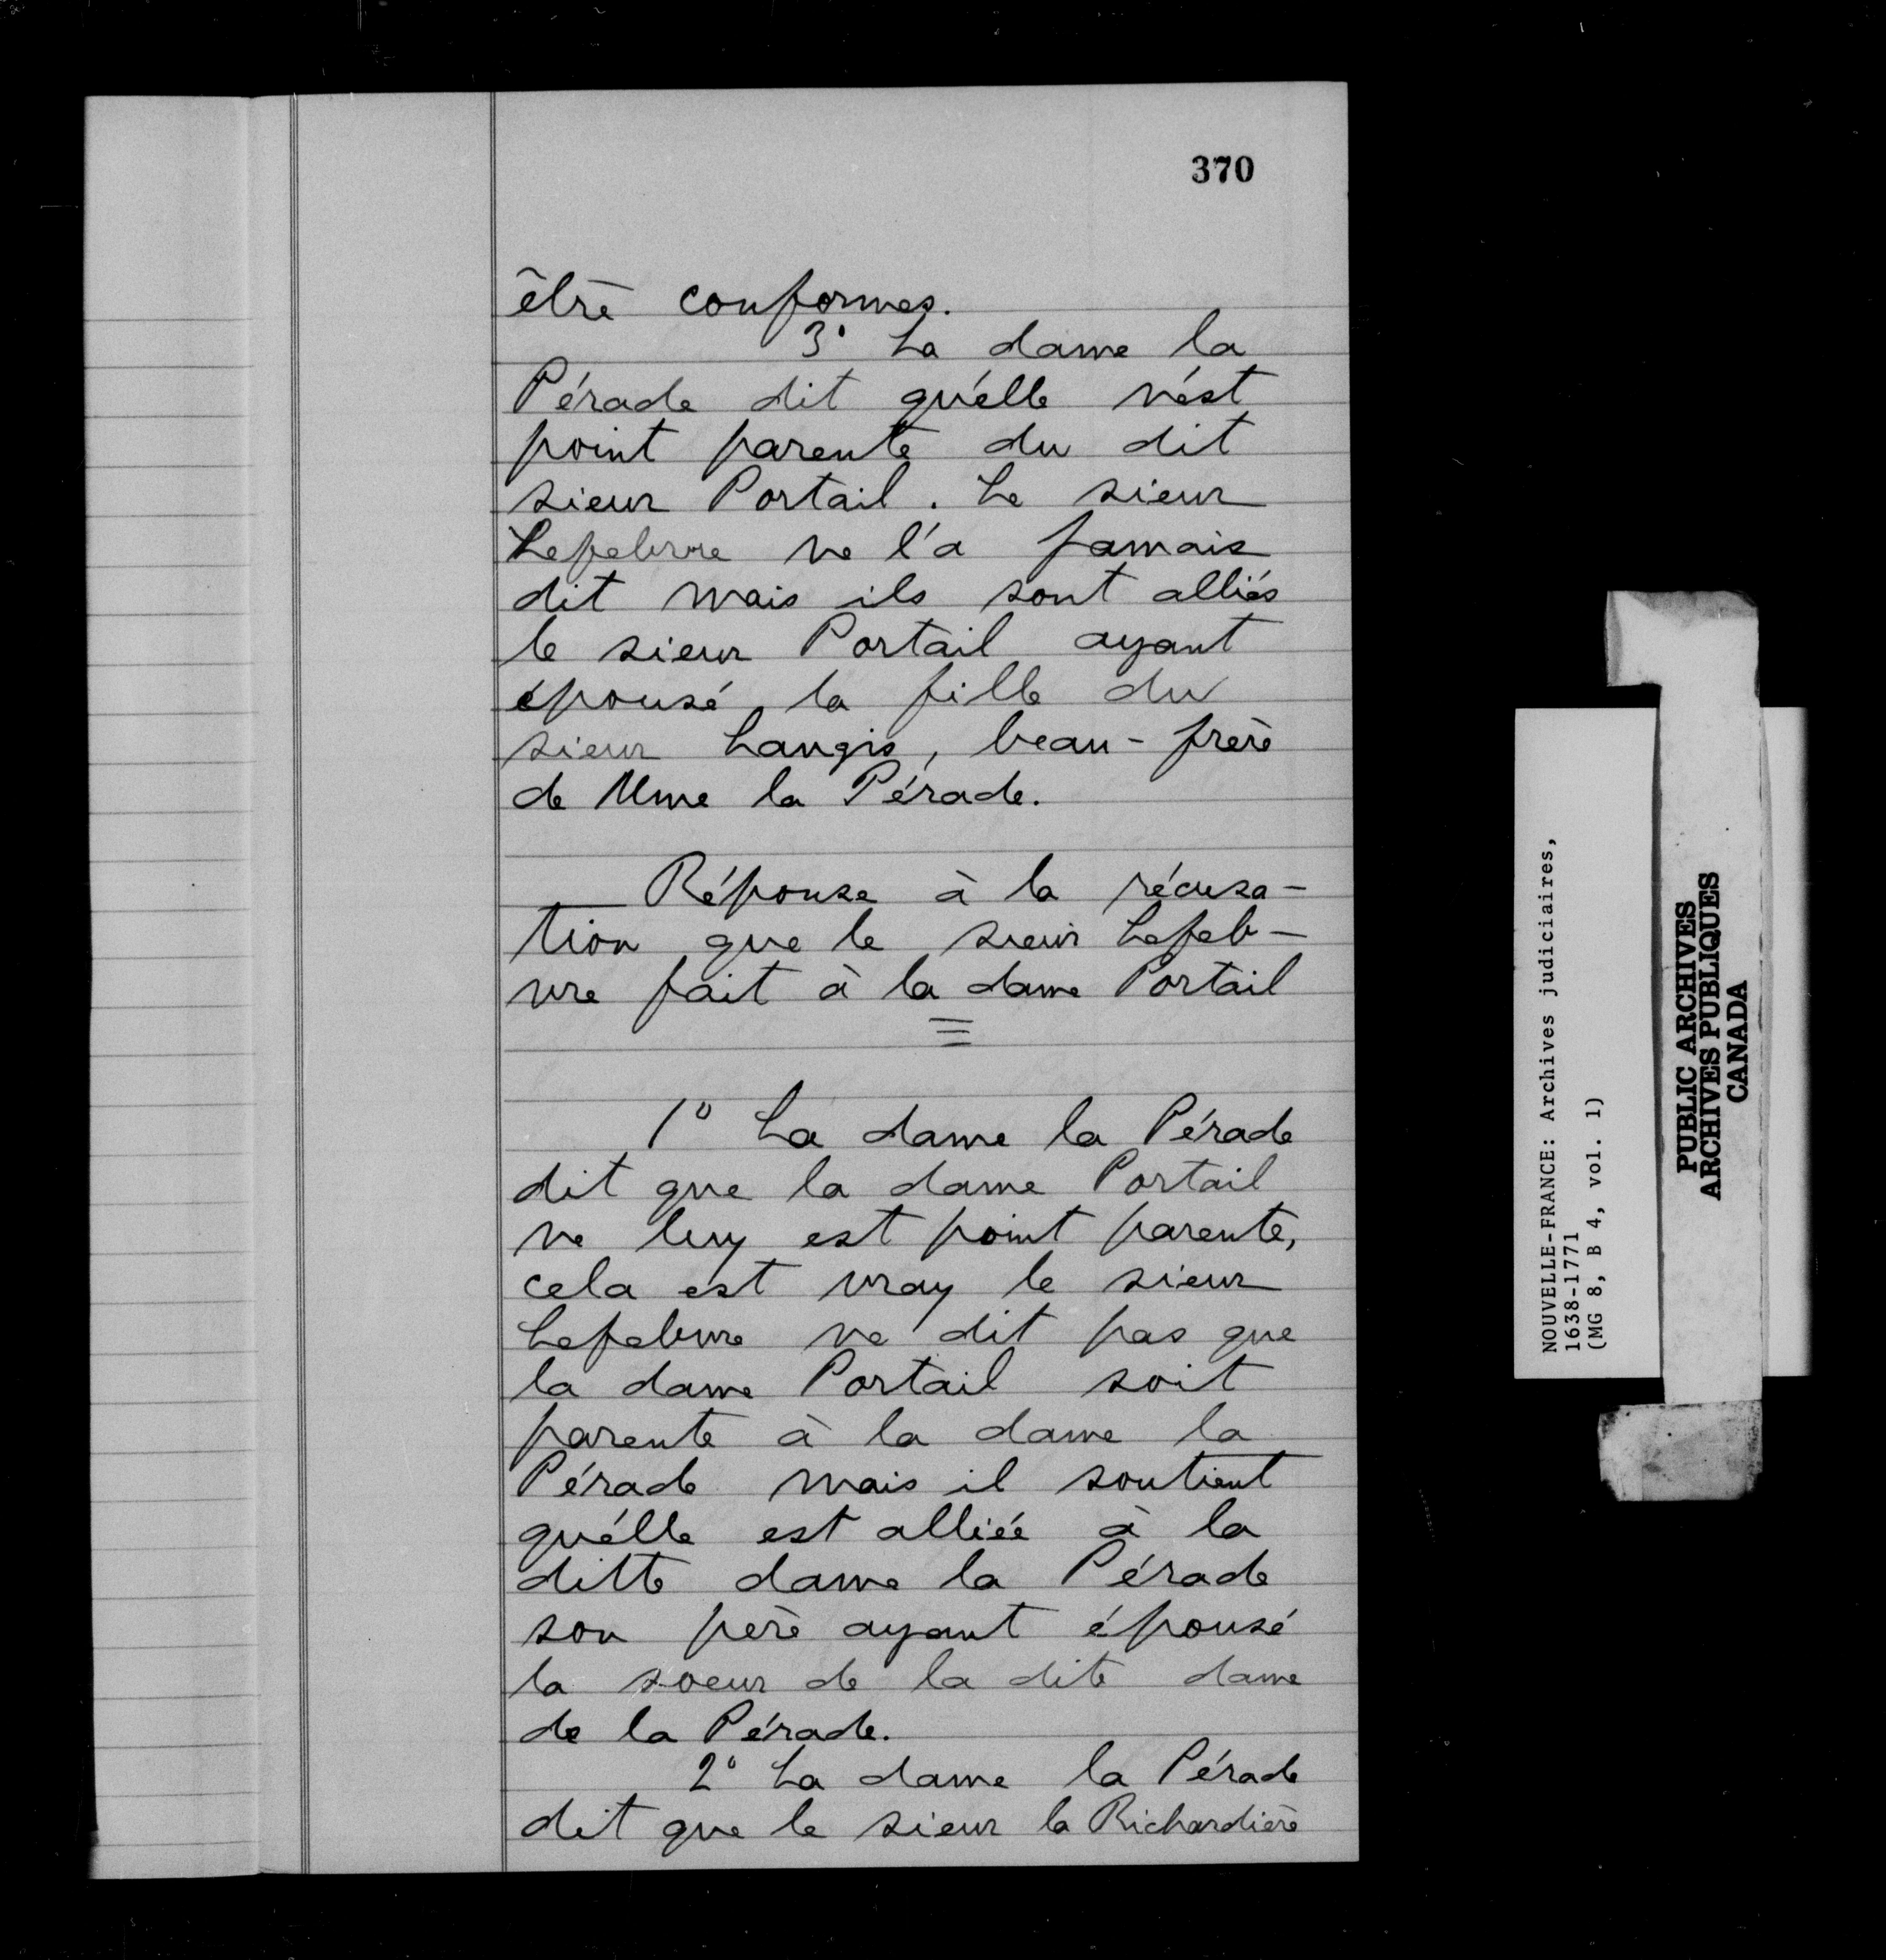 370
être conformes.
3° La dame la
Pérade dit qu'elle n'est
point parente du dit
sieur Portail. Le sieur
Lefebvre ne l'a jamais
dit mais ils sont alliés
le sieur Portail ayant
épousé la fille du
sieur Langis, beau-frère
de Mme la Pérade.
Réponse à la récusa-
tion que le sieur Lefeb-
vre fait à la dame Portail
1° La dame la Pérade
dit que la dame Portail
ne luy est point parente,
cela est vray le sieur
Lefebvre ne dit pas que
la dame Portail soit
parente à la dame la
Pérade mais il soutient
qu'elle est alliée à la
ditte dame la Pérade
son père ayant épousé
la soeur de la dite dame
de la Pérade.
2° La dame la Pérade
dit que le sieur la Richardière
NOUVELLE-FRANCE: Archives judiciaires,
1638-1771
(MG 8, B 4, vol. 1)
PUBLIC ARCHIVES
ARCHIVES PUBLIQUES
CANADA